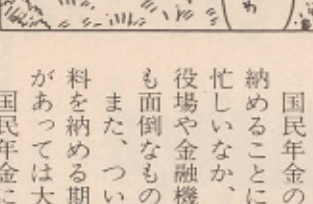 わ
国民年金の
納めることに
忙しいなか、
役場や金融機
も面倒なもの
また、つい
料を納める期
があっては大
国民年金に